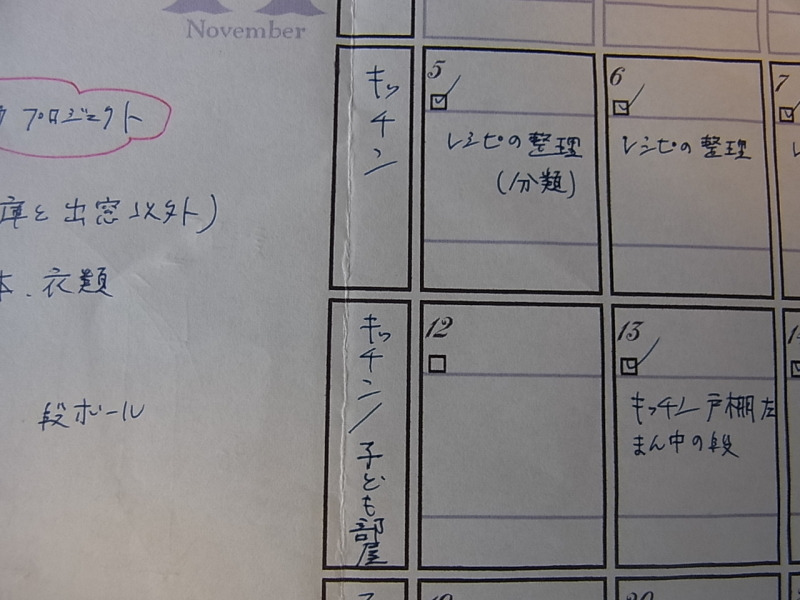 November
プロジェクト
庫と出窓以外)
本、衣類
段ボール
キッチン
5
レシピの整理
(分類)
6
レシピの整理
7
キッチン/子ども部屋
12
13
キッチン戸棚左
まん中の段